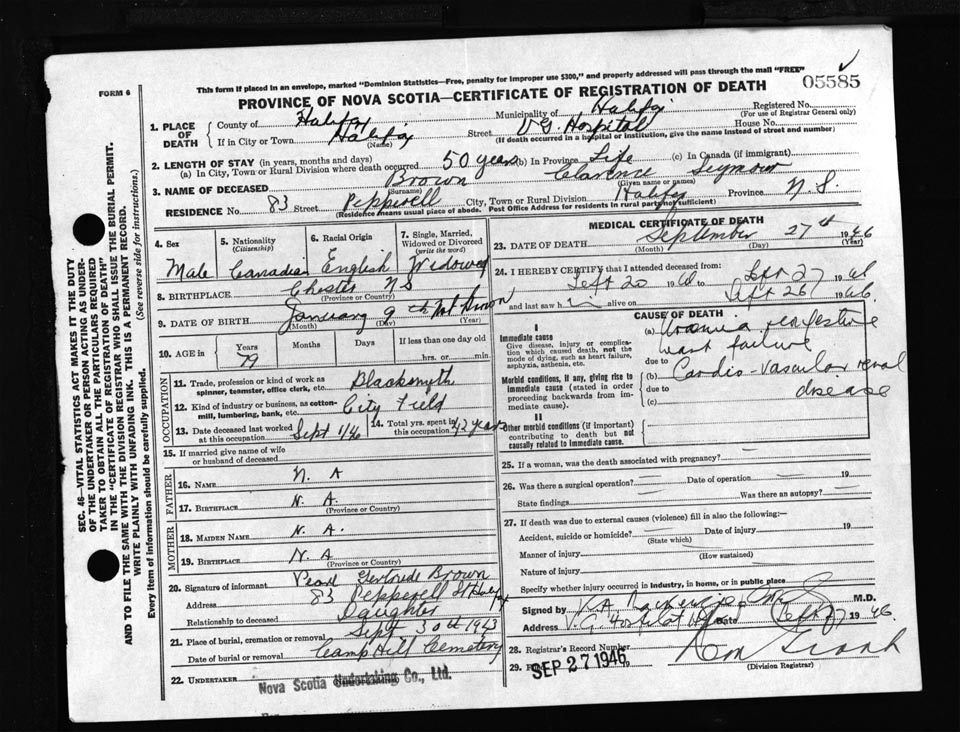 This form if placed in an envelope, marked "Dominion Statistics—Free, penalty for improper use $300," and properly addressed will pass through the mail "FREE"
FORM 6
05585
PROVINCE OF NOVA SCOTIA—CERTIFICATE OF REGISTRATION OF DEATH
SEC. 46—VITAL STATISTICS ACT MAKES IT THE DUTY
OF THE UNDERTAKER OR PERSON ACTING AS UNDER-
TAKER TO OBTAIN ALL THE PARTICULARS REQUIRED
IN THE "CERTIFICATE OF REGISTRATION OF DEATH"
AND TO FILE THE SAME WITH THE DIVISION REGISTRAR WHO SHALL ISSUE THE BURIAL PERMIT.
WRITE PLAINLY WITH UNFADING INK. THIS IS A PERMANENT RECORD.
Every item of information should be carefully supplied. (See reverse side for instructions.)
1. PLACE OF DEATH
County of Halifax Municipality of Halifax Registered No.
(For use of Registrar General only)
If in City or Town Halifax Street V G. Hospital House No.
(Name) (If death occurred in a hospital or institution, give the name instead of street and number)
2. LENGTH OF STAY (in years, months and days)
(a) In City, Town or Rural Division where death occurred 50 years (b) In Province Life (c) In Canada (if immigrant)
3. NAME OF DECEASED Brown Clarence Seymour
(Surname) (Given name or names)
RESIDENCE No. 83 Street Pepperell City, Town or Rural Division Halifax Province N. S.
(Residence means usual place of abode. Post Office Address for residents in rural parts not sufficient)
4. Sex Male
5. Nationality (Citizenship) Canadian
6. Racial Origin English
7. Single, Married, Widowed or Divorced (write the word) Widower
8. BIRTHPLACE Chester NS
(Province or Country)
9. DATE OF BIRTH January 9th Not Known
(Month) (Day) (Year)
10. AGE in Years Months Days If less than one day old
79 hrs. or min.
OCCUPATION
11. Trade, profession or kind of work as spinner, teamster, office clerk, etc. Blacksmyth
12. Kind of industry or business, as cotton-mill, lumbering, bank, etc. City Field
13. Date deceased last worked at this occupation Sept 1/46
14. Total yrs. spent in this occupation 42 years
15. If married give name of wife or husband of deceased
FATHER
16. NAME N. A
17. BIRTHPLACE N. A.
(Province or Country)
MOTHER
18. MAIDEN NAME N. A.
19. BIRTHPLACE N. A
(Province or Country)
20. Signature of informant Pearl Gertrude Brown
Address 83 Pepperell St Halifax
Relationship to deceased Daughter
21. Place of burial, cremation or removal Sept 30th 1943
Date of burial or removal Camp Hill Cemetery
22. UNDERTAKER Nova Scotia Undertaking Co., Ltd.
MEDICAL CERTIFICATE OF DEATH
23. DATE OF DEATH September 27th 1946
(Month) (Day) (Year)
24. I HEREBY CERTIFY that I attended deceased from:
Sept 20 1946 to Sept 27 1946
and last saw him alive on Sept 26 1946.
CAUSE OF DEATH
I
Immediate cause
Give disease, injury or complication which caused death, not the mode of dying, such as heart failure, asphyxia, asthenia, etc.
(a) Uraemia congestive
heart failure
due to
Morbid conditions, if any, giving rise to immediate cause (stated in order proceeding backwards from immediate cause).
(b) Cardio-vascular renal
due to disease
(c)
II
Other morbid conditions (if important) contributing to death but not causally related to immediate cause.
25. If a woman, was the death associated with pregnancy?
26. Was there a surgical operation? Date of operation 19
State findings Was there an autopsy?
27. If death was due to external causes (violence) fill in also the following:—
Accident, suicide or homicide? Date of injury 19
(State which)
Manner of injury
(How sustained)
Nature of injury
Specify whether injury occurred in industry, in home, or in public place
Signed by K.A. Mackenzie M.D.
Address V. G. Hospital Hfx Date Sept 27 1946
28. Registrar's Record Number
29. SEP 27 1946 19
(Division Registrar)